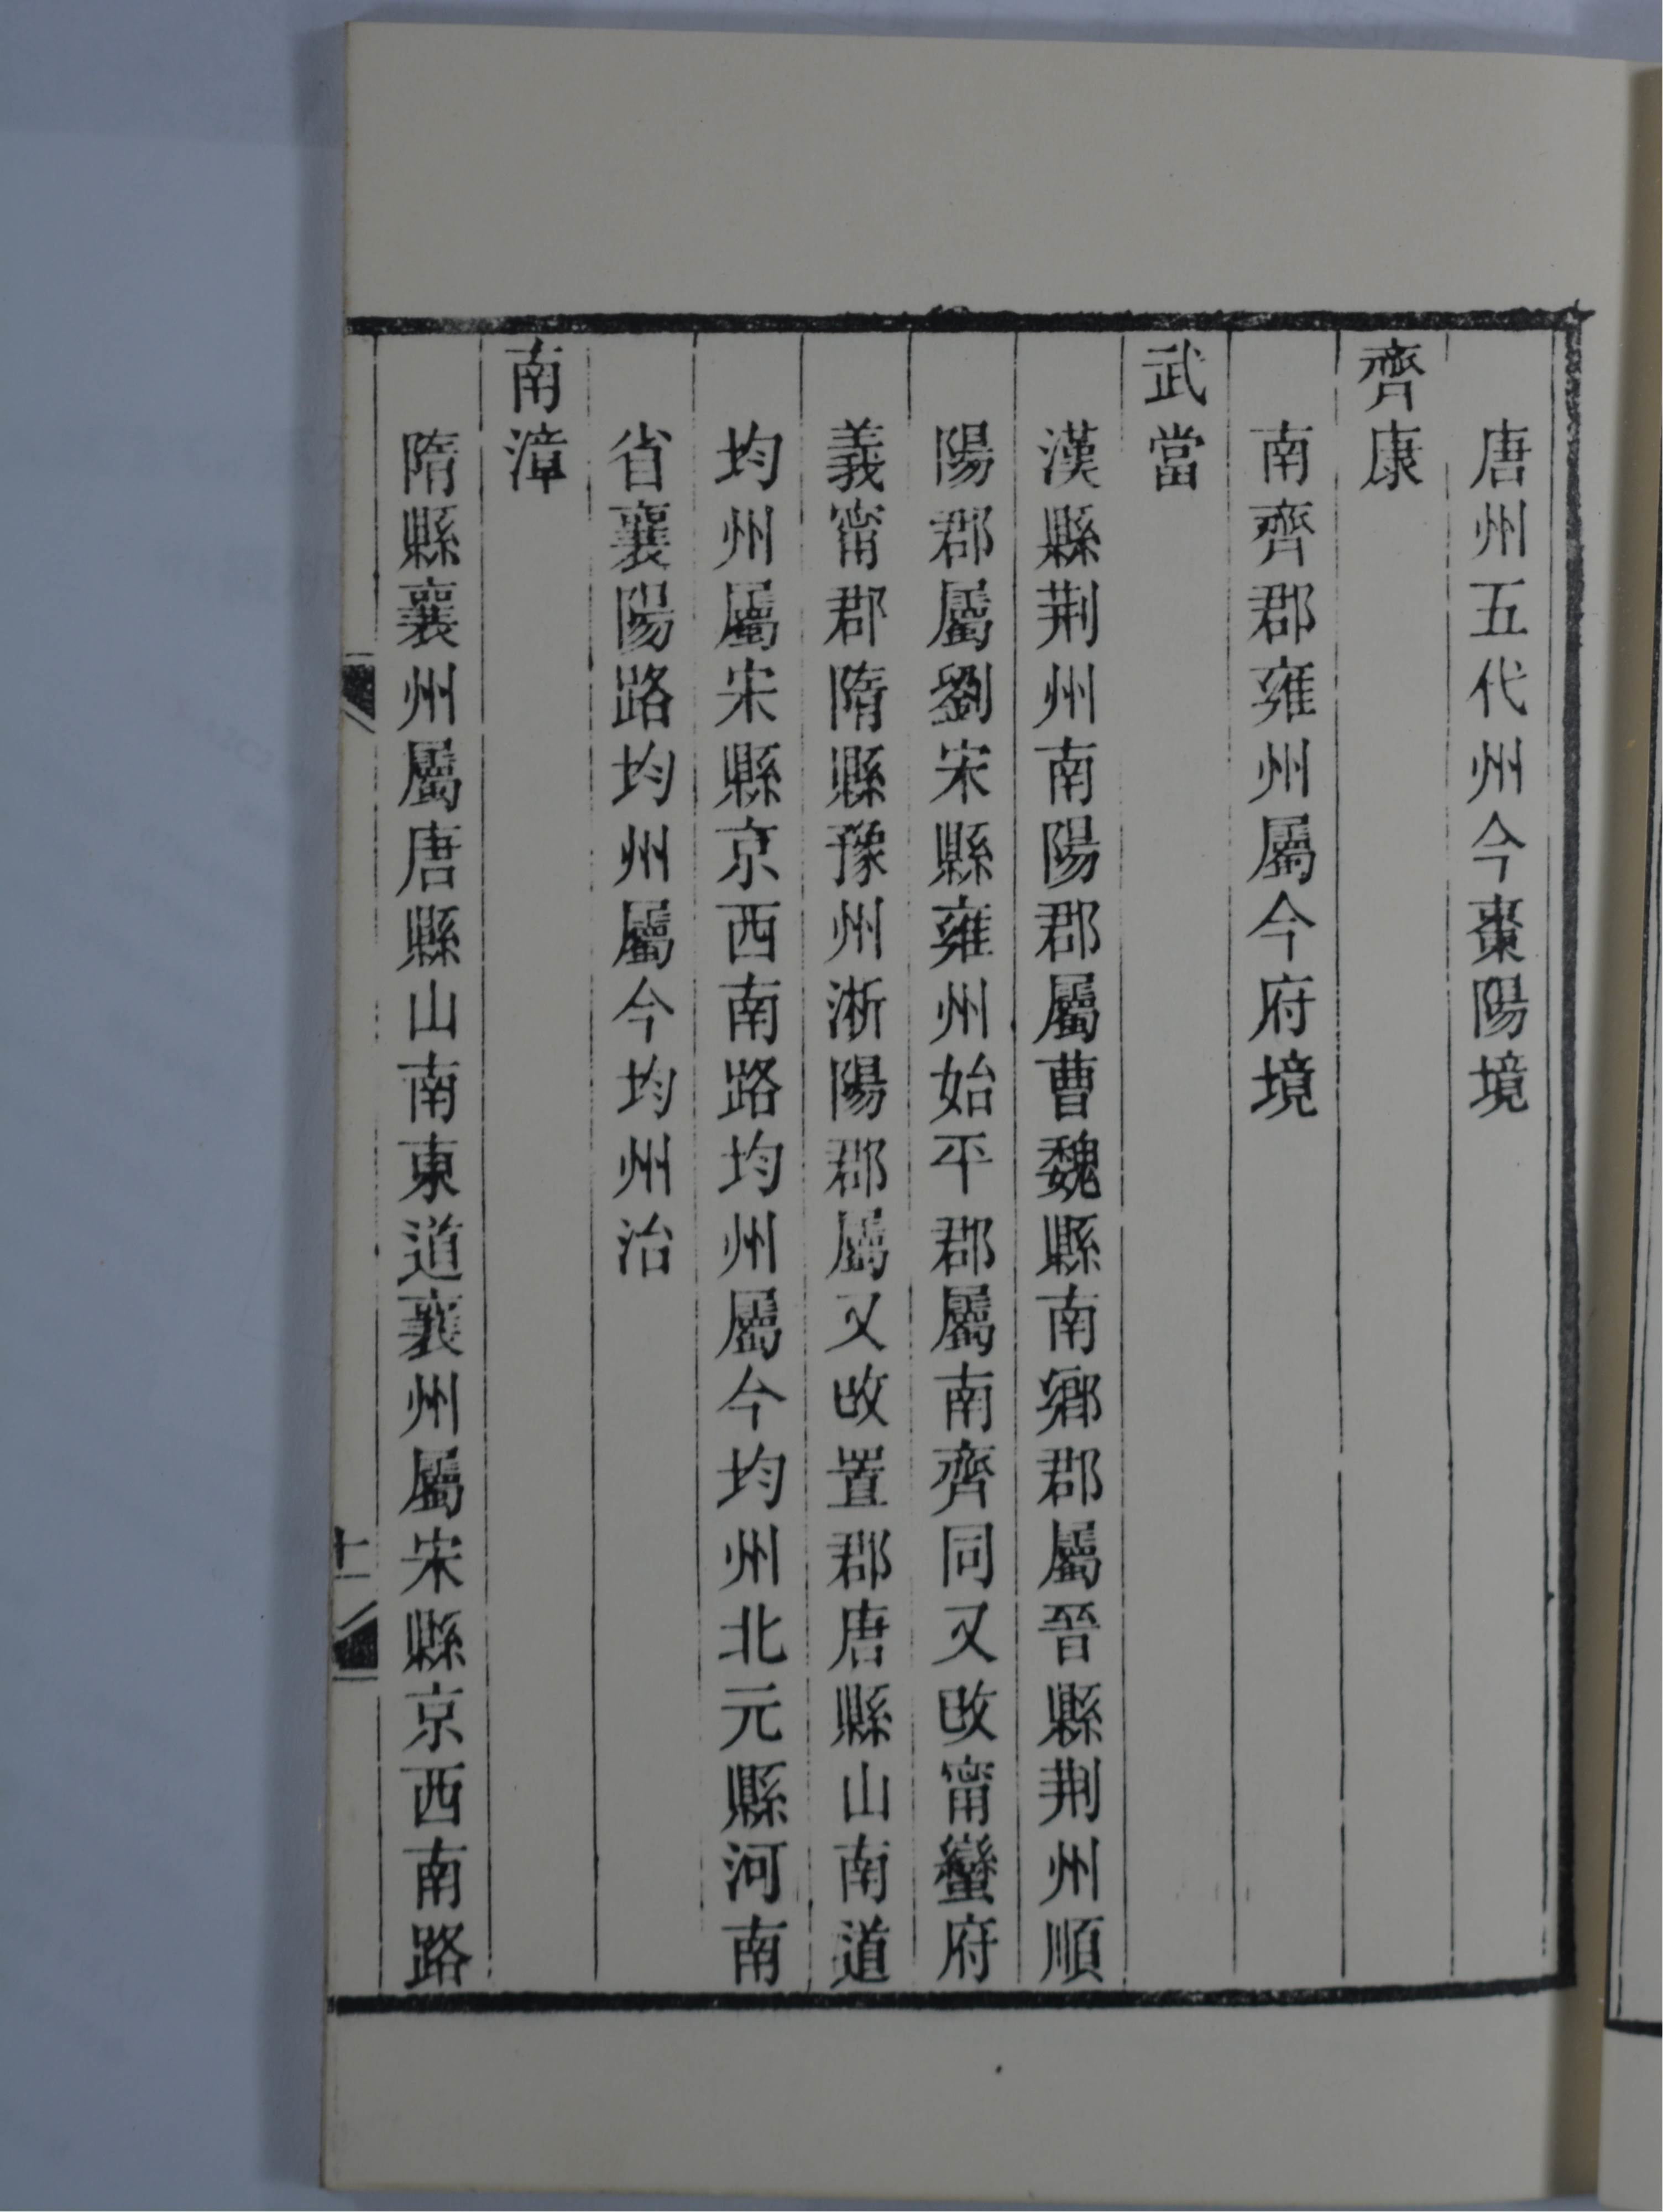 唐州五代州今棗陽境
齊康
南齊郡雍州屬今府境
武當
漢縣荆州南陽郡屬曹魏縣南鄉郡屬晉縣荆州順
陽郡屬劉宋縣雍州始平郡屬南齊同又改甯蠻府
義甯郡隋縣豫州淅陽郡屬又改置郡唐縣山南道
均州屬宋縣京西南路均州屬今均州北元縣河南
省襄陽路均州屬今均州治
南漳
隋縣襄州屬唐縣山南東道襄州屬宋縣京西南路